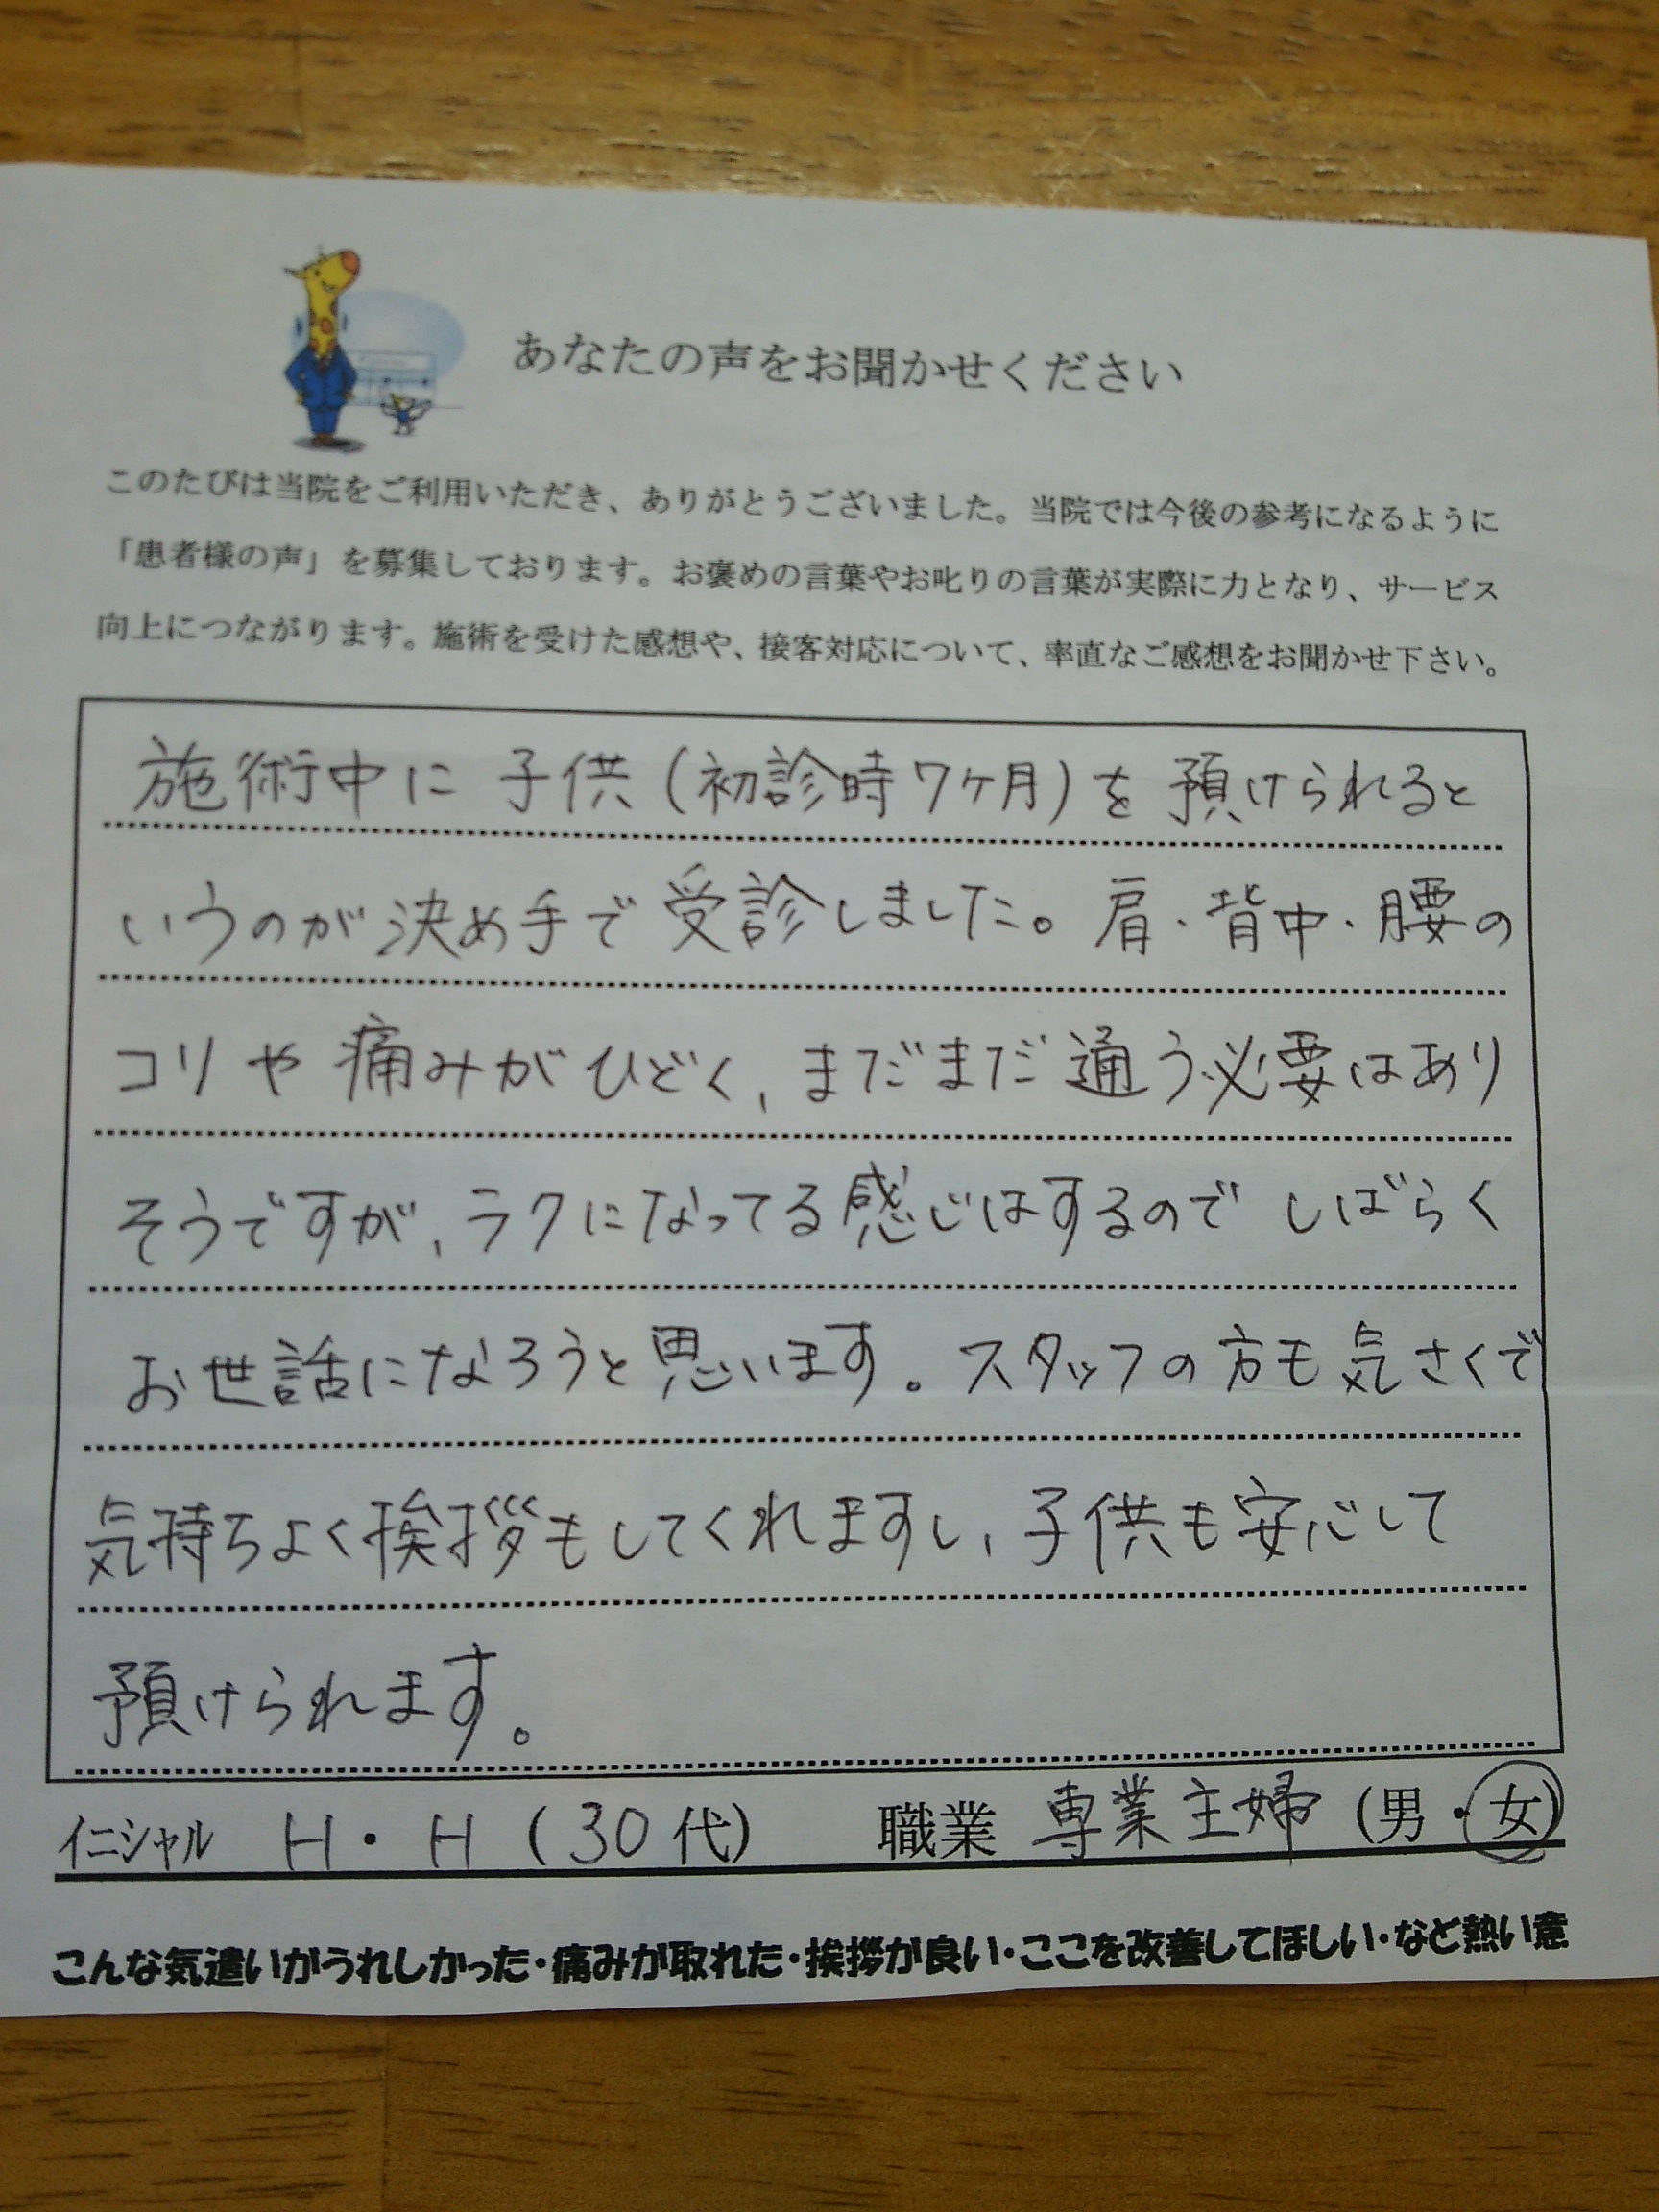 あなたの声をお聞かせください
このたびは当院をご利用いただき、ありがとうございました。当院では今後の参考になるように
「患者様の声」を募集しております。お褒めの言葉やお叱りの言葉が実際に力となり、サービス
向上につながります。施術を受けた感想や、接客対応について、率直なご感想をお聞かせ下さい。
施術中に 子供(初診時7ヶ月)を預けられると
いうのが決め手で受診しました。肩・背中・腰の
コリや痛みがひどく、まだまだ通う必要はあり
そうですが、ラクになってる感じはするので しばらく
お世話になろうと思います。スタッフの方も気さくで
気持ちよく挨拶もしてくれますし、子供も安心して
預けられます。
イニシャル H・H (30代) 職業 専業主婦 (男・女)
こんな気遣いがうれしかった・痛みが取れた・挨拶が良い・ここを改善してほしい・など熱い意